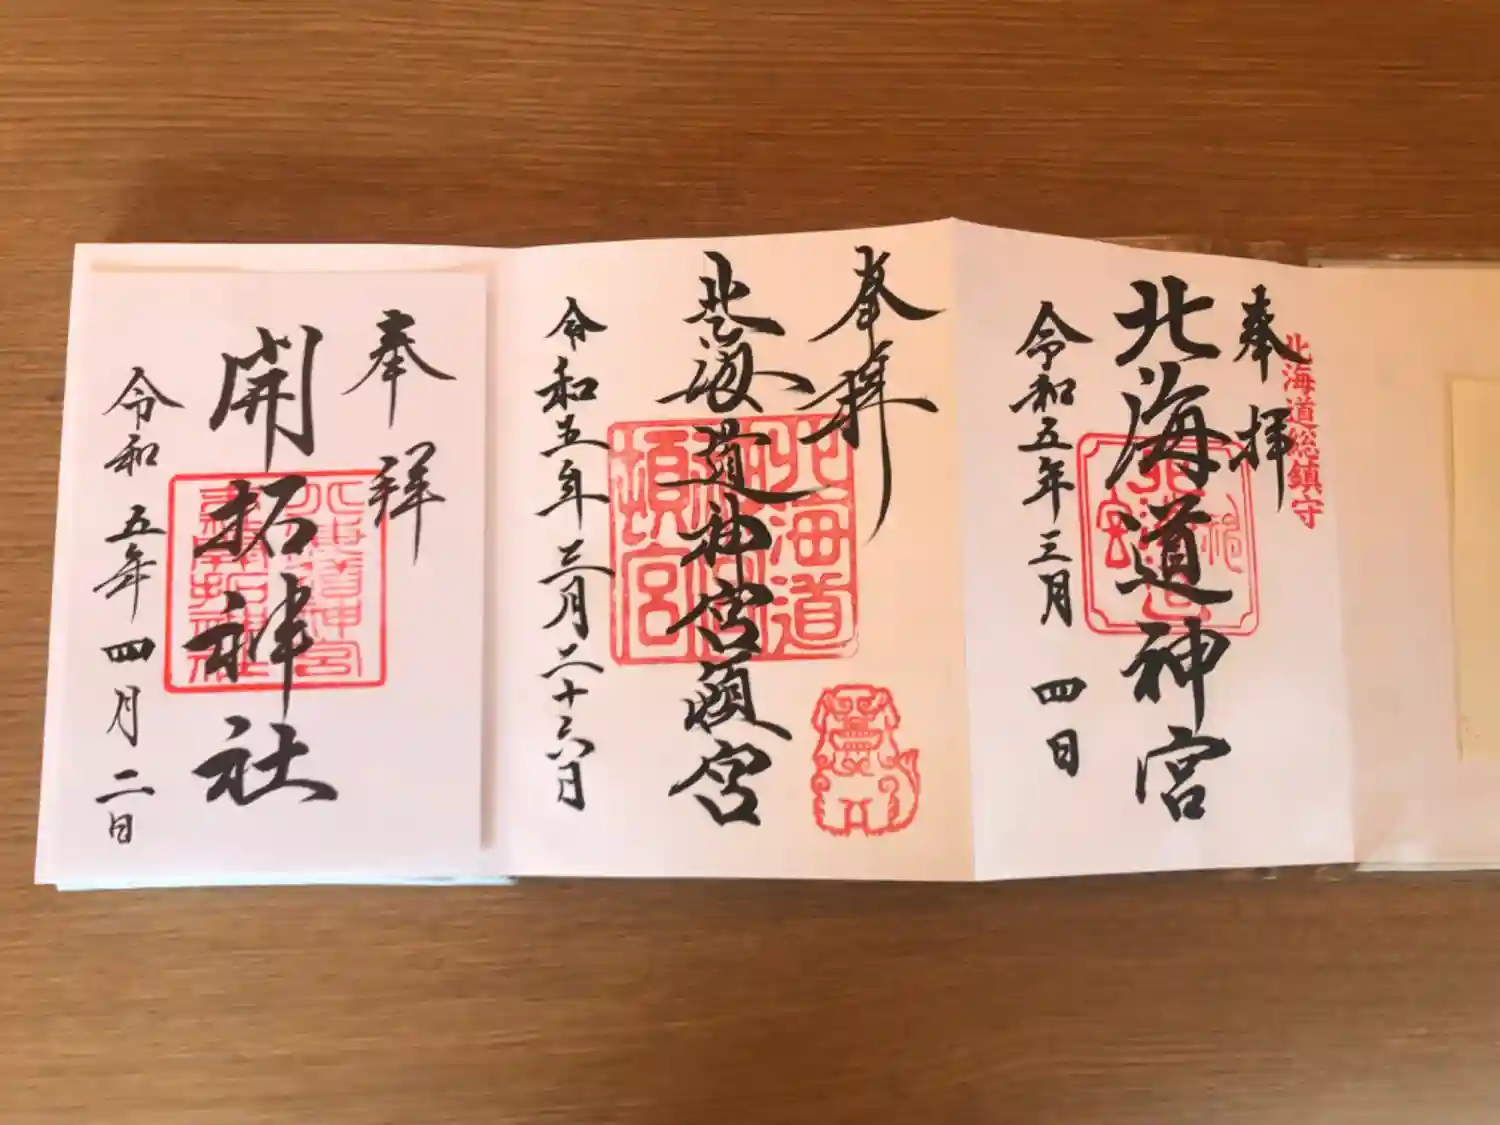 北海道総鎮守
奉拝
北海道神宮
令和五年三月四日
奉拝
北海道神宮頓宮
北海道
神宮
頓宮
令和五年三月二十六日
奉拝
開拓神社
令和五年四月二日